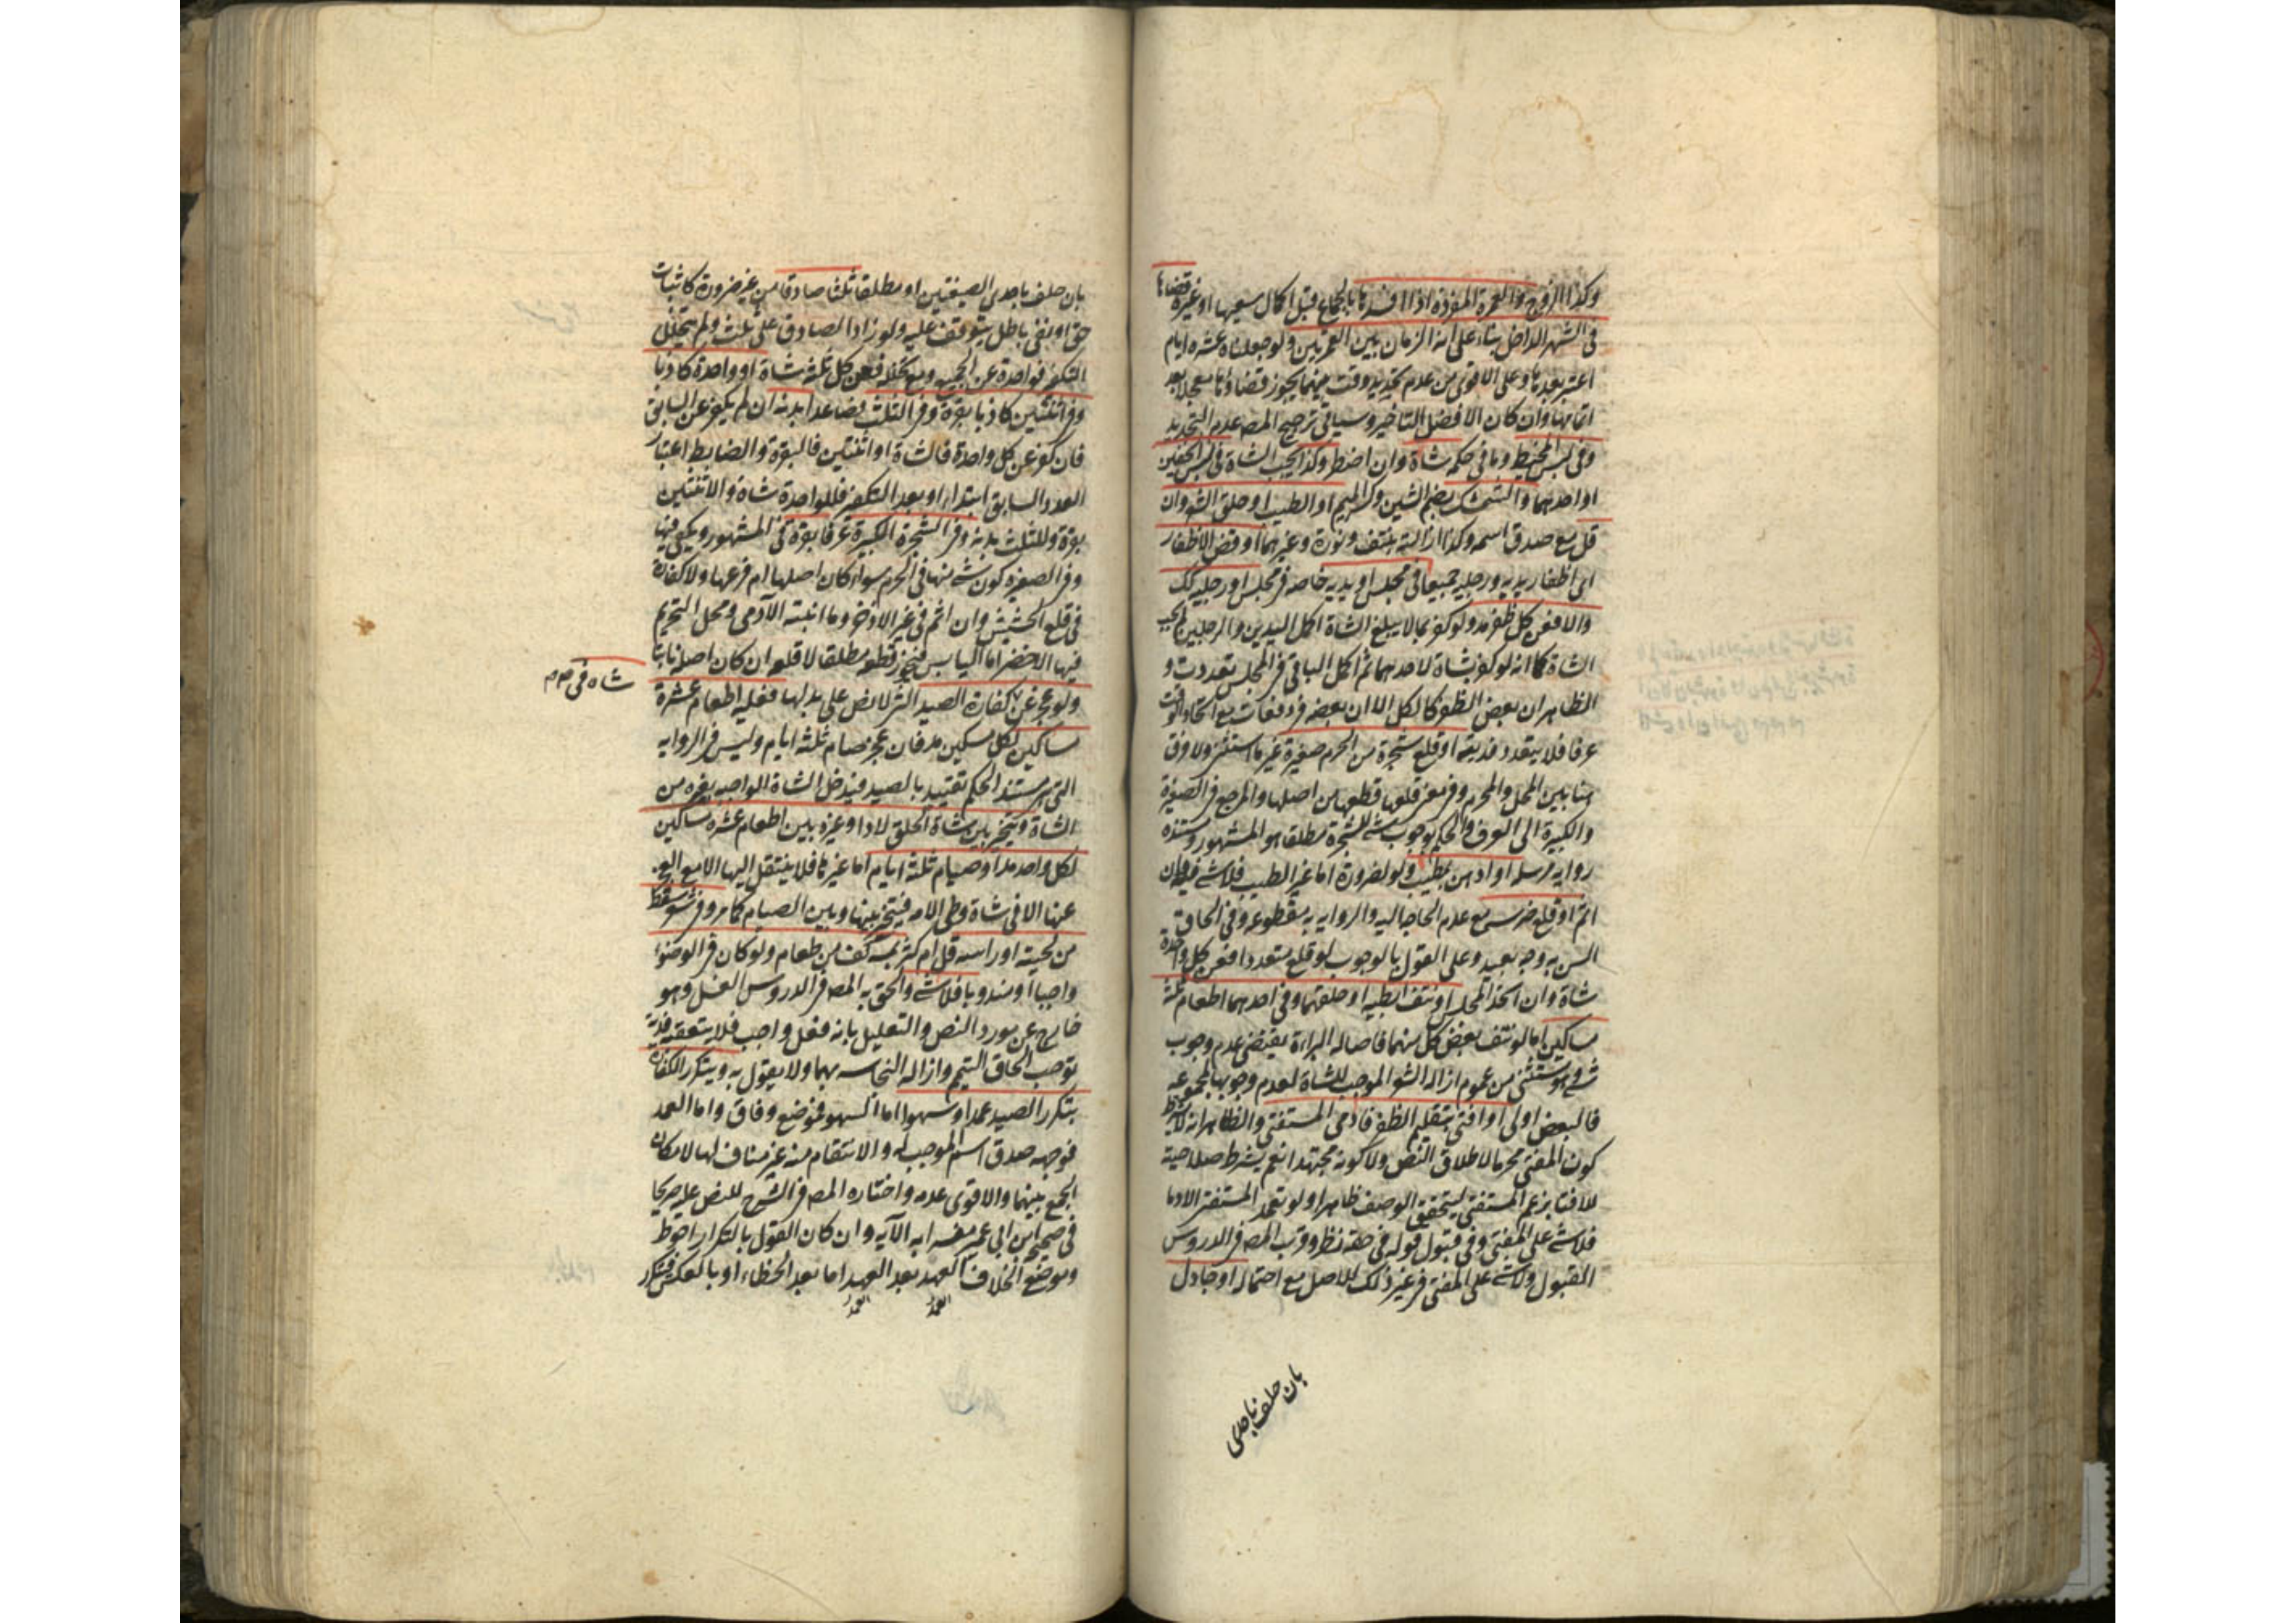 وكذا الزوج والعمرة المفردة اذا افسدها بالجماع قبل اكمال سعيها او غيره قضاها
فى الشهر الداخل بناء على انه الزمان بين العمرتين ولو جعلناه عشرة ايام
اعتبر بعدها وعلى الاقوى من عدم تحديد وقت بينهما يجوز قضاؤها معجلا بعد
اتمامها وان كان الافضل التاخير وسياتى ترجيح المصه عدم التحديد
وفى لبس المخيط وما فى حكمه شاة وان اضطر وكذا تجب الشاة فى لبس الخفين
او احدهما والشمشك بضم الشين وكسر الميم او الطيب او حلق الشعر وان
قل مع صدق اسمه وكذا ازالته بنتف ونورة وغيرهما او قص الاظفار
اى اظفار يديه ورجليه جميعا فى مجلس او يديه خاصه فى مجلس او رجليه كك
والا فعن كل ظفر مد ولو كفر بما لا يبلغ الشاة اكمل اليدين والرجلين لم يجب
الشاة كما انه لو كفر بشاة لاحدهما ثم اكمل الباقى فى المجلس تعددت و
الظاهر ان بعض الظفر كالكل الا ان بعضه فى دفعات مع اتحاد الوقت
عرفا فلا يتعدد فديته او قلع شجرة من الحرم صغيرة غير ما استثنى ولا فرق
هنا بين المحل والمحرم وفى معنى قلعها قطعها من اصلها والمرجع فى الصغيرة
والكبيرة الى العرف والحكم بوجوب شئ للشجرة مطلقا هو المشهور ومستنده
رواية مرسله او ادهن بمطيب ولو لضرورة اما غير الطيب فلا شئ فيه وان
اثم او قلع ضرسه مع عدم الحاجة اليه والرواية به مقطوعه وفى الحاق
السن به وجه بعيد وعلى القول بالوجوب لو قلع متعددا فعن كل واحدة
شاة وان اتحد المجلس او نتف ابطيه او حلقهما وفى احدهما اطعام ثلثة
مساكين اما لو نتف بعض كل منهما فاصاله البراءة يقتضى عدم وجوب
شئ وهو مستثنى من عموم ازالة الشعر الموجب للشاة لعدم وجوبها لمجموعه
فالبعض اولى او افتى بتقليم الظفر فادمى المستفتى والظاهر انه لا يشترط
كون المفتى محرما لاطلاق النص ولا كونه مجتهدا نعم يشترط صلاحيته
للافتا بزعم المستفتى ليتحقق الوصف ظاهرا ولو تعمد المستفتى الادما
فلا شئ على المفتى وفى قبول قوله فى حقه نظر وقرب المصه فى الدروس
القبول ولا شئ على المفتى فى غير ذلك للاصل مع احتماله او جادل
بان حلف باحدى
بان حلف باحدى الصيغتين او مطلقا ثلثا صادقا من غير ضرورة كاثبات
حق او نفى باطل يتوقف عليه ولو زاد الصادق على ثلث ولم يتخلل
التكفير فواحدة عن الجميع ومع تخلله فعن كل ثلثة شاة او واحدة كاذبا
وفى اثنتين كاذبا بقرة وفى الثلث فصاعدا بدنة ان لم يكفر عن السابق
فان كفر عن كل واحدة فالشاة او اثنتين فالبقرة والضابط اعتبار
العدد السابق ابتداء او بعد التكفير فللواحدة شاة والاثنتين
بقرة وللثلث بدنه وفى الشجرة الكبيرة عرفا بقرة فى المشهور ويكفى فيها
وفى الصغيره كون شئ منها فى الحرم سواء كان اصلها ام فرعها ولا كفارة
فى قلع الحشيش وان اثم فى غير الاذخر وما انبته الآدمى ومحل التحريم
فيهما الاخضر اما اليابس فيجوز قطعه مطلقا لا قلعه ان كان اصله ثابتا
ولو عجز عن كفارة الصيد التى لا نص على بدلها فعليه اطعام عشرة
شاه فى
مساكين لكل مسكين مد فان عجز صام ثلثة ايام وليس فى الروايه
التى هى مستند الحكم تقييد بالصيد فيدخل الشاة الواجبه بغيره من
الشاة ويتخير بين شاة الحلق لاذى او غيره وبين اطعام عشره مساكين
لكل واحد مد او صيام ثلثة ايام اما غيرها فلا ينتقل اليهما الا مع العجز
عنها الا فى شاة وطى الامه فيتخير بينها وبين الصيام كما مر وفى سقوط شعر
من لحيته او راسه قل ام كثر بمسه كف من طعام ولو كان فى الوضوء
واجبا او مندوبا فلا شئ والحق به المصه فى الدروس الغسل وهو
خارج عن مورد النص والتعليل بانه فعل واجب فلا يتعقبه فدية
يوجب الحاق التيمم وازاله النجاسه بهما ولا يقول به ويتكرر الكفارة
بتكرر الصيد عمدا او سهوا اما السهو فموضع وفاق واما العمد
فوجهه صدق اسم الموجب له والانتقام منه غير مناف لها لامكان
الجمع بينهما والاقوى عدمه واختاره المصه فى الشرح للنص عليه صريحا
فى صحيح ابن ابى عمير مفسرا به الآيه وان كان القول بالتكرار احوط
وموضع الخلاف العمد بعد العمد اما بعد الخطاء او بالعكس فيتكرر
العمد العمد